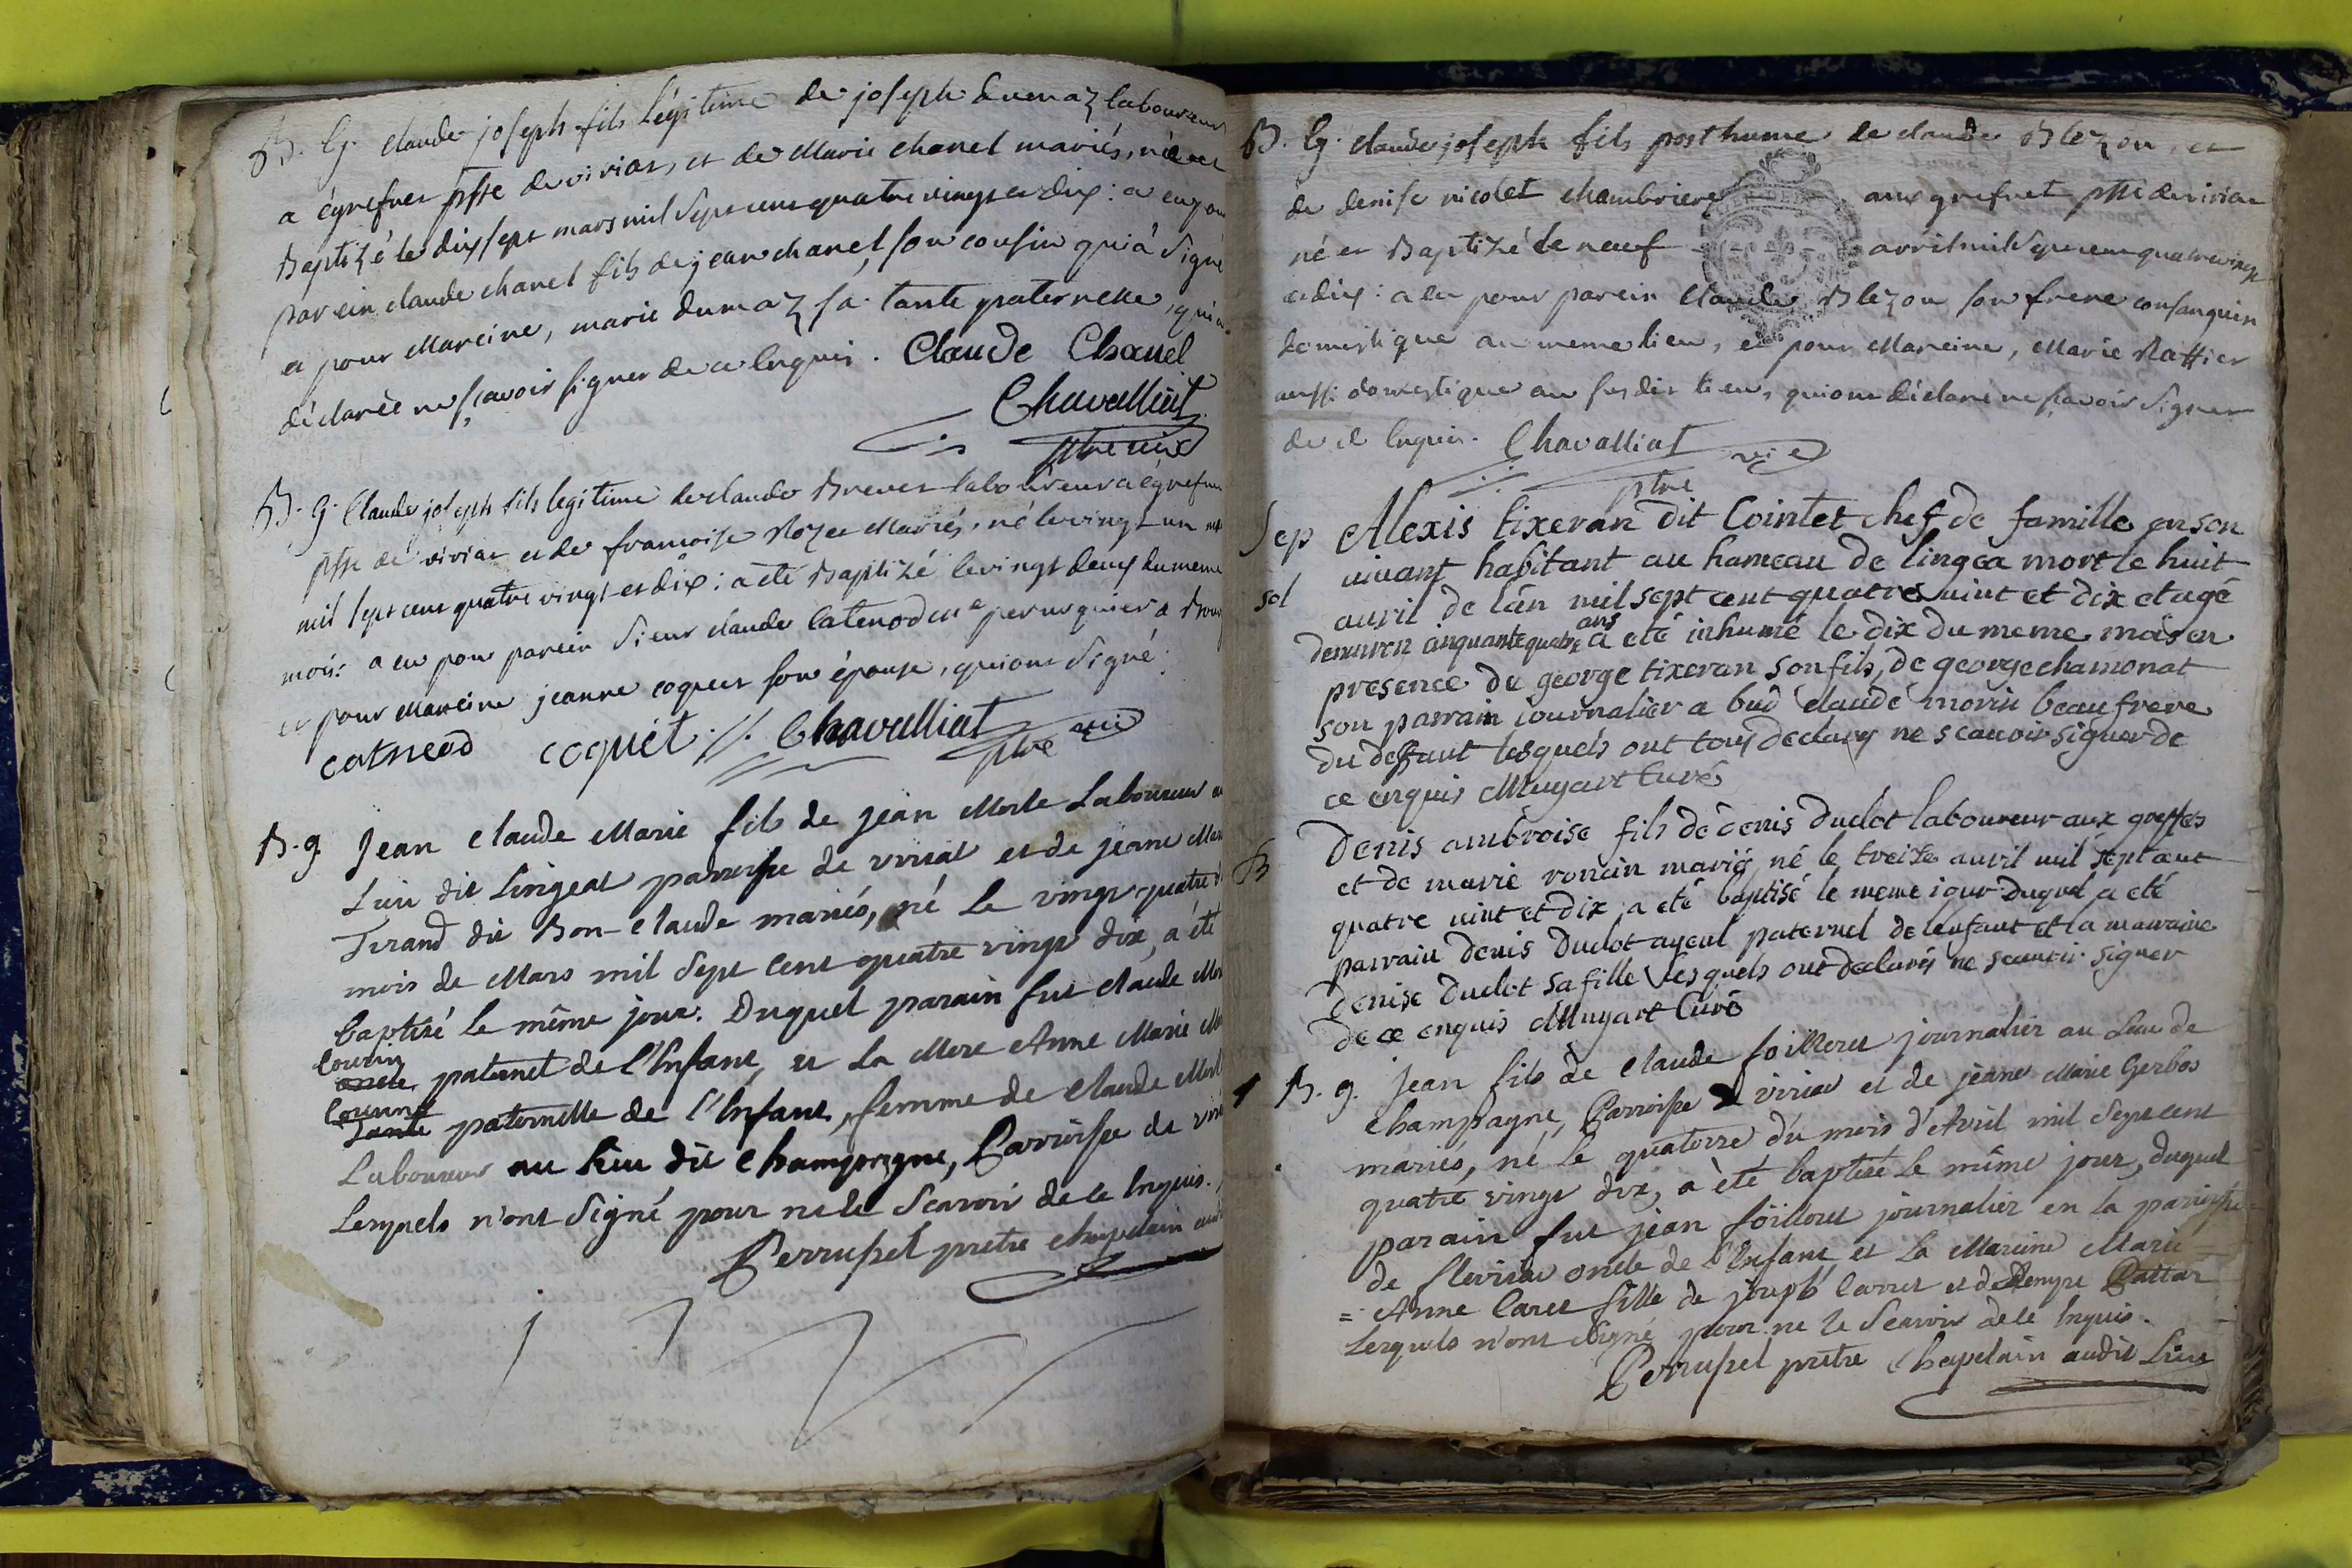 B. g. claude joseph fils Légitime de joseph dumaz laboureur
a égrefner psse de viriat, et de Marie chanel mariés, né et
Baptizé le dix sept mars mil sept cens quatre vingt et dix : a eu pour
parein claude chanel fils de jean chanel, son cousin qui a signé
et pour Mareine, marie dumaz sa tante paternelle, qui a
déclarée ne sçavoir signer de ce Enquis. Claude Chanel
Chavalliat
ptre vic
B. g. Claude joseph fils legitime de claude Brevet laboureur a égrefner
psse de viriat et de francoise Rozet Mariés, né le vingt un
mil sept cens quatre vingt et dix : a été Baptizé le vingt deux du meme
mois : a eu pour parein Sieur claude catenod me perruquier a Bourg
et pour Mareine jeanne coquet son épouse, qui ont signé.
catneod coquet. Chavalliat
ptre vic
B. g. Jean Claude Marie fils de Jean Morle Laboureur au
Lieu dit Lingeat parroisse de viriat et de jeanne
Tirand dit Bon-Claude mariés, né le vingt quatre du
mois de Mars mil sept cent quatre vingt dix, a été
baptisé le même jour. Duquel parain fut claude
Cousin
oncle paternel de l'Enfant, et La Mere Anne Marie
Cousine
Tante paternelle de l'Enfant, femme de Claude
Laboureur au Lieu dit Champagne, Parroisse de
Lesquels n'ont Signé pour ne le Scavoir de ce Enquis.
Perrusset pretre chapelain
B. g. claude joseph fils posthume de claude Blezon, et
de denise nicolet chambriere aux grefnet psse de viriat
né et Baptizé le neuf avril mil sept cens quatre vingt
et dix : a eu pour parein Claude Blezon son frere consanguin
domestique au meme lieu, et pour Mareine, Marie Raffier
aussi domestique au susdit lieu, qui ont déclaré ne sçavoir signer
de ce Enquis. Chavalliat vic
ptre
Sep Alexis tixeran dit Cointet chef de famille en son
vivant habitant au hameau de lingea mort le huit
sol avril de l'an mil sept cent quatre vint et dix et agé
denviron cinquante quatre ans a eté inhumé le dix du meme mois en
presence de george tixeran son fils, de george chamonat
son parrain journalier a bud claude morin beau frere
du deffunt lesquels ont tous declarés ne scavoir signer de
ce enquis Muyart Curé
B Denis ambroise fils de denis duclot laboureur aux greffes
et de marie ronain mariés, né le treize avril mil sept cent
quatre vint et dix a eté baptisé le meme jour duquel a eté
parrain denis duclot ayeul paternel de l'enfant et la marraine
denise duclot sa fille lesquels ont declarés ne scavoir signer
de ce enquis Muyart Curé
B. g. Jean fils de Claude foilleret journalier au Lieu de
Champagne, Parroisse de viriat et de jeanne Marie Gerbos
mariés, né le quatorze du mois d'Avril mil sept cent
quatre vingt dix, a été baptisé le même jour, duquel
parain fut jean foilleret journalier en la parroisse
de fleiriat oncle de l'Enfant, et La Mareine Marie
= Anne Carret fille de joseph Carret et de
Lesquels n'ont signé pour ne le Scavoir de ce Enquis.
Perrusset pretre Chapelain audit Lieu